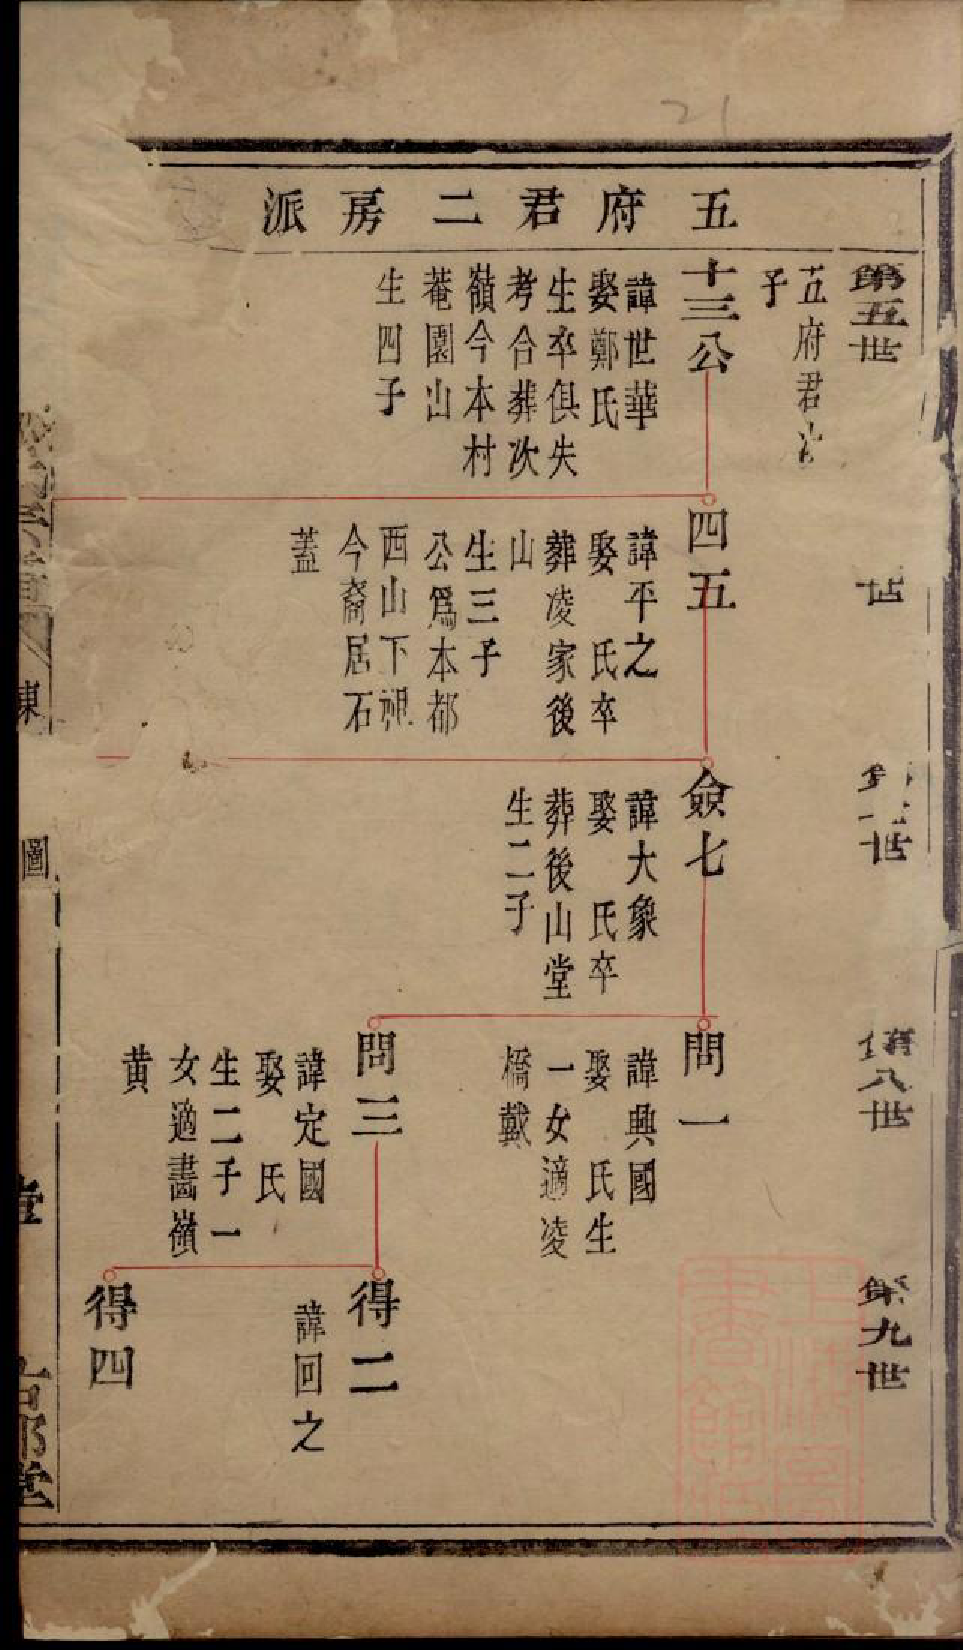 五府君二房派
第五世
五府君次
子
十三公
諱世華
娶鄭氏
生卒俱失
考合葬次
嶺今本村
菴園山
生四子
世
四五
諱平之
娶　氏卒
葬凌家後
山
生三子
公爲本都
西山下祖
今裔居石
蓋
世
僉七
諱大象
娶　氏卒
葬後山堂
生二子
第八世
問一
諱興國
娶　氏生
一女適凌
橋戴
問三
諱定國
娶　氏
生二子一
女適畵嶺
黄
第九世
得二
諱回之
得四
東
圖
堂
21